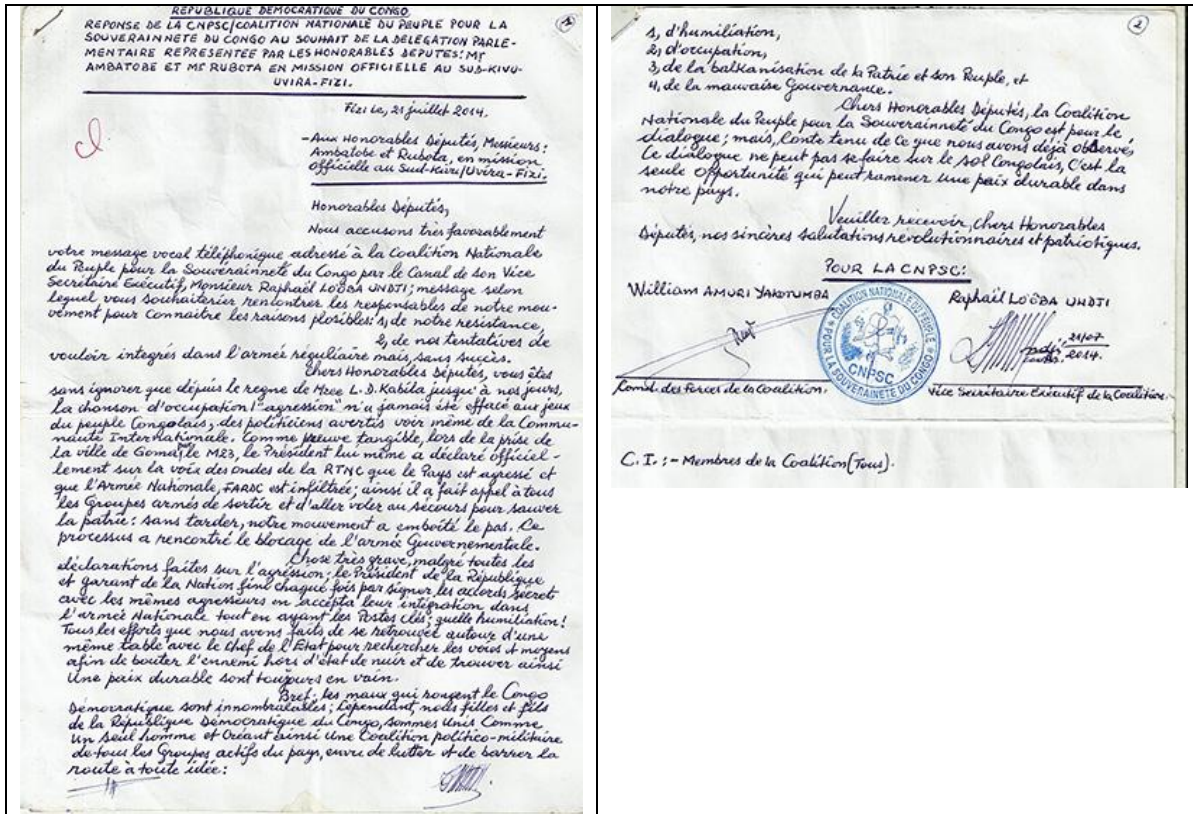 REPUBLIQUE DEMOCRATIQUE DU CONGO
1
REPONSE DE LA CNPSC/COALITION NATIONALE DU PEUPLE POUR LA
SOUVERAINNETE DU CONGO AU SOUHAIT DE LA DELEGATION PARLE-
MENTAIRE REPRESENTEE PAR LES HONORABLES DEPUTES: Mr
AMBATOBE ET Mr RUBOTA EN MISSION OFFICIELLE AU SUD-KIVU-
UVIRA-FIZI.
Fizi le, 21 juillet 2014.
-Aux Honorables Députés, Messieurs:
Ambatobe et Rubota, en mission
officielle au Sud-Kivu/Uvira-Fizi.
Honorables Députés,
Nous accusons très favorablement
votre message vocal téléphonique adressé à la Coalition Nationale
du Peuple pour la Souverainneté du Congo par le Canal de son Vice
Secrétaire Exécutif, Monsieur Raphaël LOÔBA UNDTI; message selon
lequel vous souhaiterier rencontrer les responsables de notre mou-
vement pour Connaitre les raisons plosibles: 1, de notre resistance,
2, de nos tentatives de
vouloir integrés dans l'armée réguliaire mais, sans succès.
Chers Honorables Députés, vous êtes
sans ignorer que dépuis le regne de Mzee L.D. Kabila jusqu'à nos jours,
la chanson d'occupation l'agression n'a jamais été effacé aux jeux
du peuple Congolais, des politiciens avertis voir même de la Commu-
nauté Internationale. Comme preuve tangible, lors de la prise de
la ville de Goma par le M23, le Président lui même a déclaré officiel-
lement sur la voix des ondes de la RTNC que le Pays est agressé et
que l'Armée Nationale, FARDC est infiltrée; ainsi il a fait appel à tous
les Groupes armés de sortir et d'aller voler au sécours pour sauver
la patrie: sans tarder, notre mouvement a emboîté le pas. Ce
processus a rencontré le blocage de l'armée Gouvernementale.
Chose très grave, malgré toutes les
déclarations faites sur l'agréssion; le Président de la République
et garant de la Nation fini chaque fois par signer les accords sécrets
avec les mêmes agresseurs en accepta leur intégration dans
l'armée Nationale tout en ayant les Postes clés; quelle humiliation!
Tous les efforts que nous avons faits de se retrouver autour d'une
même table avec le Chef de l'Etat pour rechercher les voies et moyens
afin de bouter l'ennemi hors d'état de nuir et de trouver ainsi
Une paix durable sont toujours en vain.
Bref: les maux qui rongent le Congo
Démocratique sont innombralables; Cependant, nous filles et fils
de la République Démocratique du Congo, sommes Unis Comme
un seul homme et Créant ainsi Une Coalition politico-militaire
de tous les Groupes actifs du pays, envu de lutter et de barrer la
route à toute idée:
2
1, d'humiliation,
2, d'occupation,
3, de la balkanisation de la Patrie et son Peuple, et
4, de la mauvaise Gouvernance.
Chers Honorables Députés, la Coalition
Nationale du Peuple pour la Souverainneté du Congo est pour le
dialogue; mais, Conte tenu de Ce que nous avons déjà observés
Ce dialogue ne peut pas se faire sur le sol Congolais, C'est la
seule opportunité qui peut ramener une paix durable dans
notre pays.
Veuillez récevoir, chers Honorables
Députés, nos sincères salutations révolutionnaires et patriotiques.
POUR LA CNPSC:
William AMURI YAKOTUMBA
Raphaël LOÔBA UNDTI
COALITION NATIONALE DU PEUPLE
POUR LA SOUVERAINETE DU CONGO
CNPSC
21/07
2014.
Comd. des Forces de la Coalition.
Vice Secrétaire Exécutif de la Coalition.
C.I.:- Membres de la Coalition (Tous).